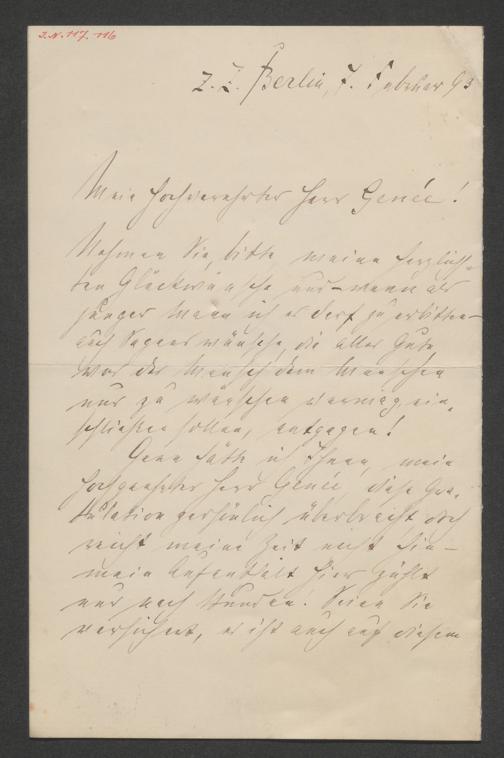 J.N. 117.116
z. Z. Berlin, 7. Februar 93
Mein hochverehrter Herr Genée!
Nehmen Sie, bitte meine herzlich-
sten Glückwünsche und – wenn als
junger Mann ich es darf zu erbitten –
auch Segenswünsche, die alles Gute
was der Mensch dem Menschen
nur zu wünschen vermag, ein-
schließen sollen, entgegen!
Gern hätte ich Ihnen, mein
hochgeehrter Herr Genée, diese Gra-
tulation persönlich überbracht, doch
reicht meine Zeit nicht hin –
mein Aufenthalt hier zählt
nur nach Stunden! Seien Sie
versichert, es ist auch auf diesem